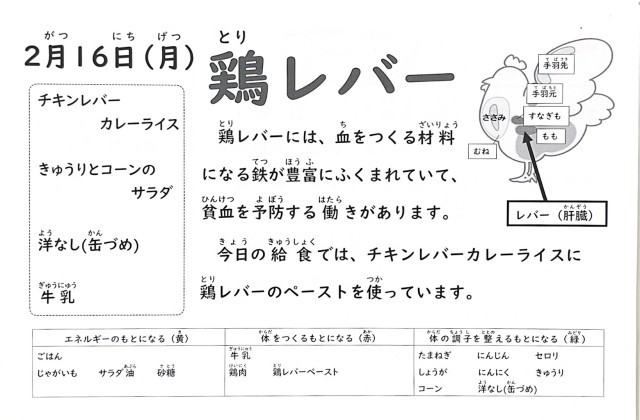 2月16日(月)
鶏レバー
チキンレバー
カレーライス
きゅうりとコーンの
サラダ
洋なし(缶づめ)
牛乳
鶏レバーには、血をつくる材料
になる鉄が豊富にふくまれていて、
貧血を予防する働きがあります。
今日の給食では、チキンレバーカレーライスに
鶏レバーのペーストを使っています。
手羽先
手羽元
ささみ
すなぎも
もも
むね
レバー(肝臓)
エネルギーのもとになる(黄)
ごはん
じゃがいも サラダ油 砂糖
体をつくるもとになる(赤)
牛乳
鶏肉 鶏レバーペースト
体の調子を整えるもとになる(緑)
たまねぎ にんじん セロリ
しょうが にんにく きゅうり
コーン 洋なし(缶づめ)